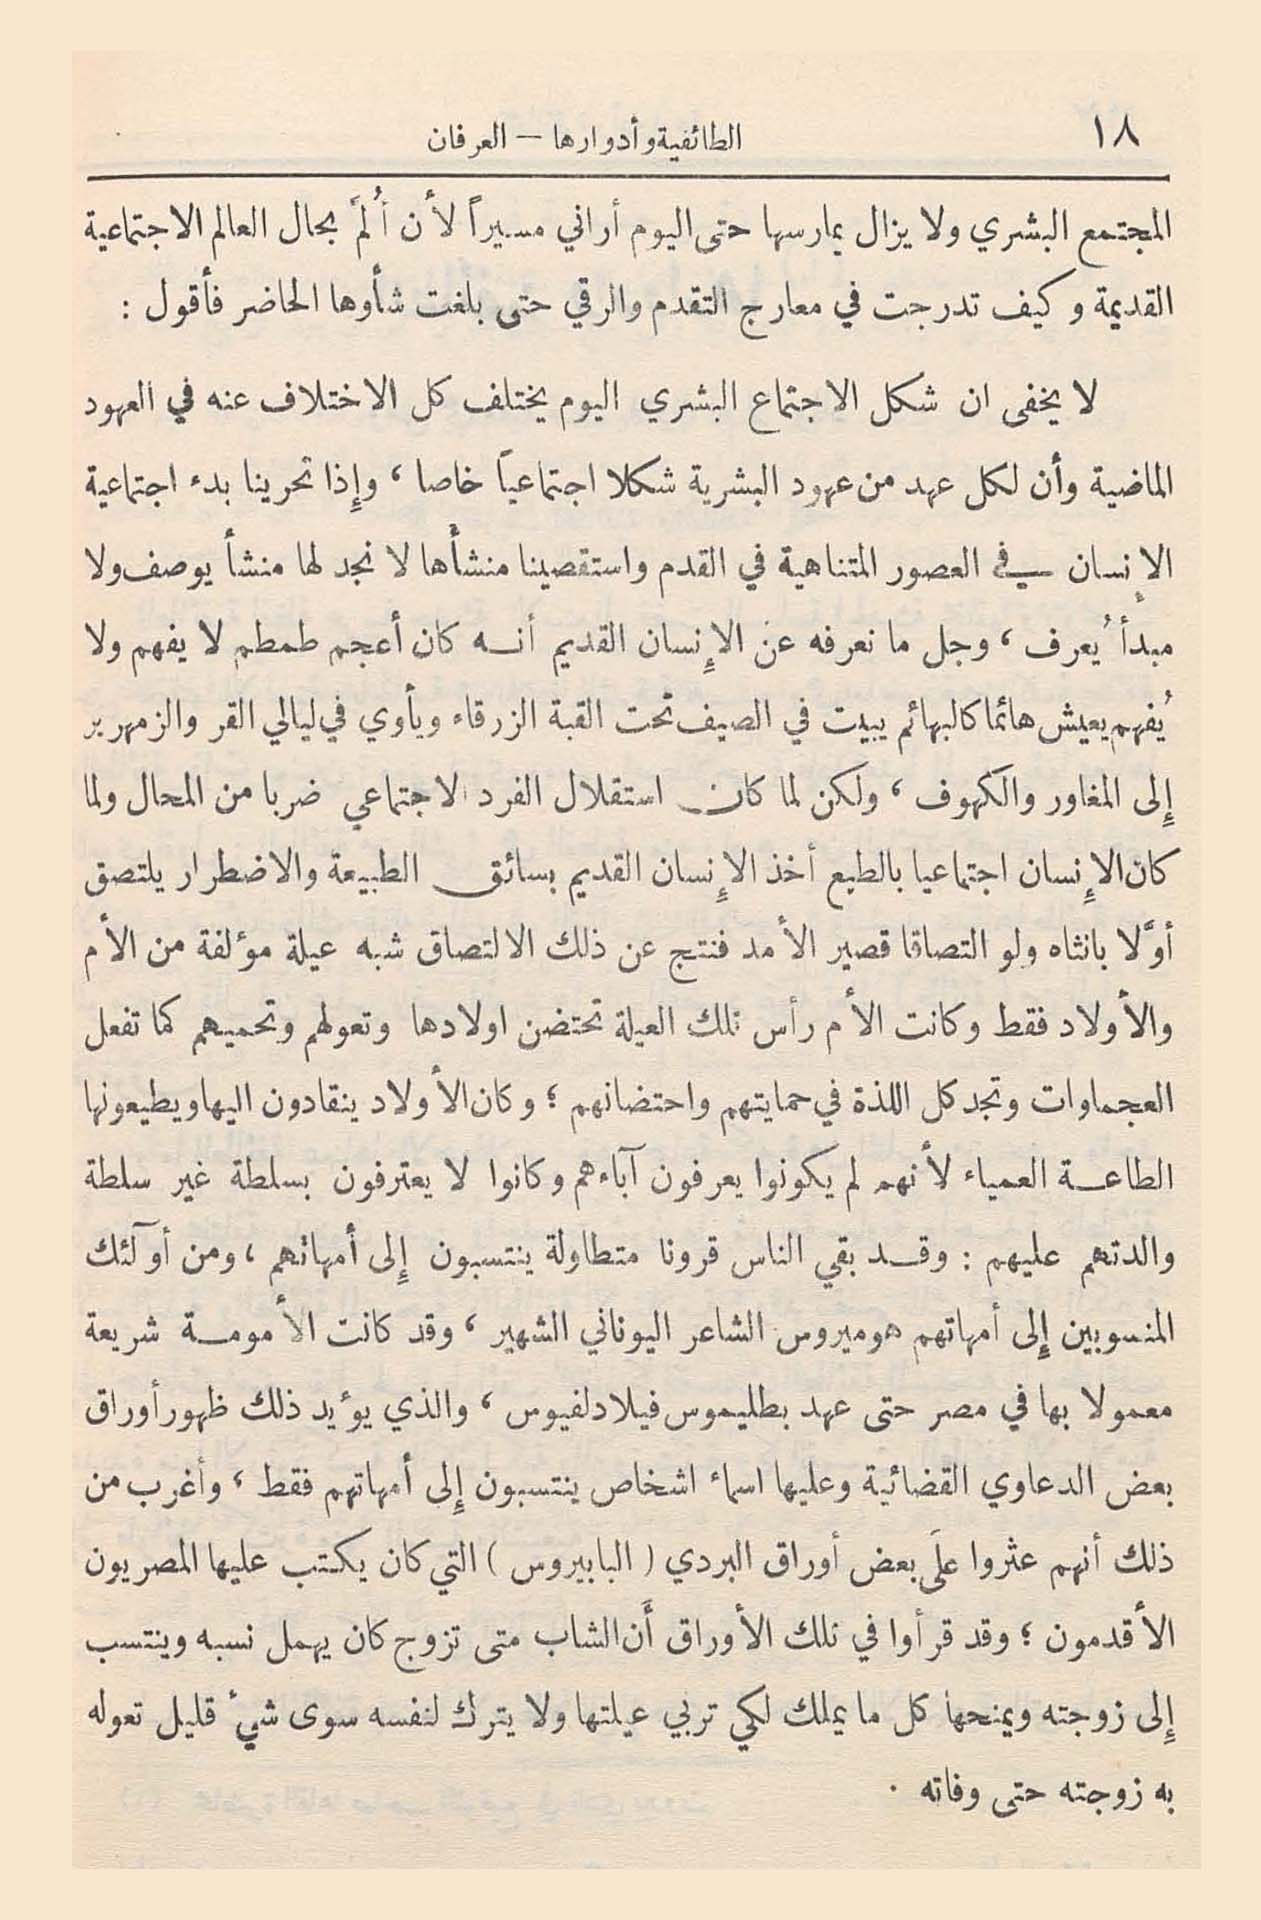 ١٨
الطائفية وأدوارها — العرفان
المجتمع البشري ولا يزال يمارسها حتى اليوم أراني مسيراً لأن أُلمَّ بحال العالم الاجتماعية
القديمة وكيف تدرجت في معارج التقدم والرقي حتى بلغت شأوها الحاضر فأقول :
لا يخفى ان شكل الاجتماع البشري اليوم يختلف كل الاختلاف عنه في العهود
الماضية وأن لكل عهد من عهود البشرية شكلا اجتماعياً خاصا ، وإذا تحرينا بدء اجتماعية
الإنسان في العصور المتناهية في القدم واستقصينا منشأها لا نجد لها منشأ يوصف ولا
مبدأ يُعرف ، وجل ما نعرفه عن الإنسان القديم أنه كان أعجم طمطم لا يفهم ولا
يُفهم يعيش هائما كالبهائم يبيت في الصيف تحت القبة الزرقاء ويأوي في ليالي القر والزمهرير
إلى المغاور والكهوف ، ولكن لما كان استقلال الفرد الاجتماعي ضربا من المحال ولما
كان الإنسان اجتماعيا بالطبع أخذ الإنسان القديم بسائق الطبيعة والاضطرار يلتصق
أوَّلا بانثاه ولو التصاقا قصير الأمد فنتج عن ذلك الالتصاق شبه عيلة مؤلفة من الأم
والأولاد فقط وكانت الأم رأس تلك العيلة تحتضن اولادها وتعولهم وتحميهم كما تفعل
العجماوات وتجد كل اللذة في حمايتهم واحتضانهم ؛ وكان الأولاد ينقادون اليها ويطيعونها
الطاعة العمياء لأنهم لم يكونوا يعرفون آباءهم وكانوا لا يعترفون بسلطة غير سلطة
والدتهم عليهم : وقد بقي الناس قرونا متطاولة ينتسبون إلى أمهاتهم ، ومن أولئك
المنسوبين إلى أمهاتهم هوميروس الشاعر اليوناني الشهير ، وقد كانت الأمومة شريعة
معمولا بها في مصر حتى عهد بطليموس فيلادلفيوس ، والذي يؤيد ذلك ظهور أوراق
بعض الدعاوي القضائية وعليها اسماء اشخاص ينتسبون إلى أمهاتهم فقط ، وأغرب من
ذلك أنهم عثروا علَى بعض أوراق البردي ( البابيروس ) التي كان يكتب عليها المصريون
الأقدمون ؛ وقد قرأوا في تلك الأوراق أَن الشاب متى تزوج كان يهمل نسبه وينتسب
إلى زوجته ويمنحها كل ما يملك لكي تربي عيلتها ولا يترك لنفسه سوى شيء قليل تعوله
به زوجته حتى وفاته .